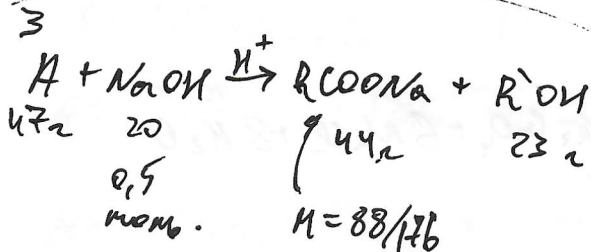 3
A + NaOH H⁺→ RCOONa + R`OH
47г 20 44г 23г
0,5
моль. M = 88/176